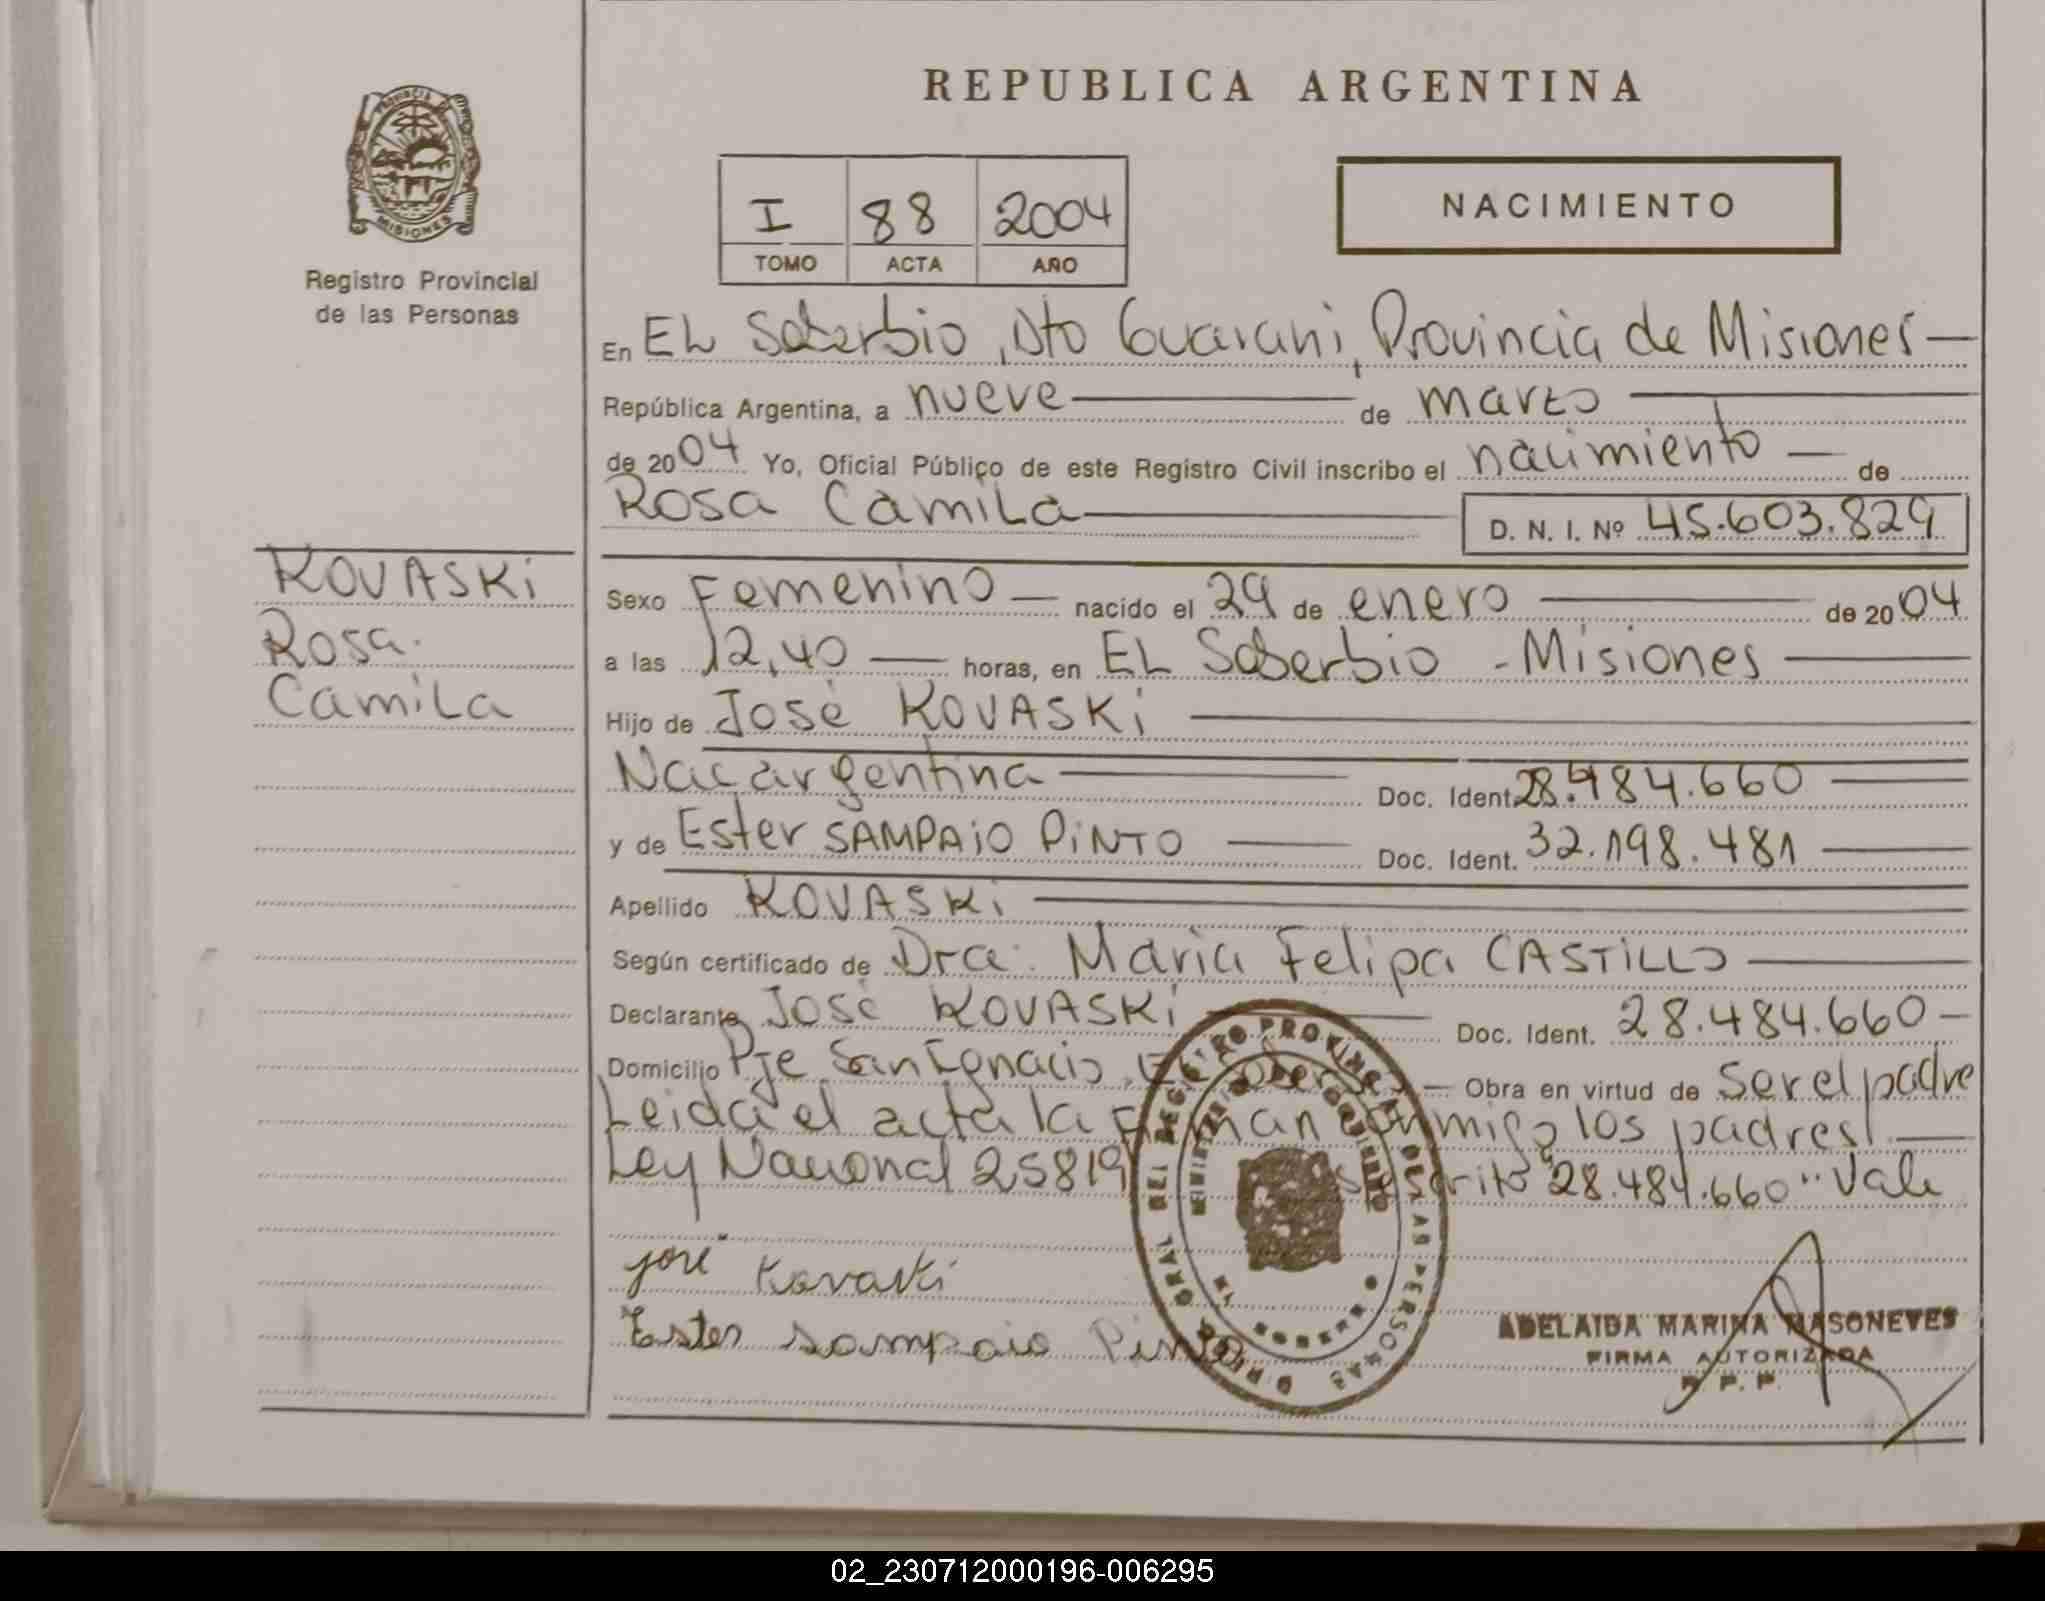 REPUBLICA ARGENTINA
PROVINCIA DE
MISIONES
Registro Provincial
de las Personas
I 88 2004
TOMO ACTA AÑO
NACIMIENTO
En EL Soberbio, Dto Guarani, Provincia de Misiones
República Argentina, a nueve de marzo
de 2004 Yo, Oficial Público de este Registro Civil inscribo el nacimiento de
Rosa Camila
D. N. I. Nº 45.603.829
KOVASKi
Rosa
Camila
Sexo Femenino nacido el 29 de enero de 2004
a las 12,40 horas, en EL Soberbio - Misiones
Hijo de José KOVASKi
Nac argentina Doc. Ident. 28.484.660
y de Ester SAMPAiO PiNTO Doc. Ident. 32.198.481
Apellido KOVASKi
Según certificado de Dra. Maria Felipa CASTILLO
Declarante José KOVASKi Doc. Ident. 28.484.660
Domicilio Pje San Ignacio, EL Soberbio Obra en virtud de Ser el padre
Leida el acta la firman conmigo los padres
Ley Nacional 25819 28.484.660" Vale
José Kovaski
Ester Sampaio Pinto
ADELAIDA MARINA MASONEVES
FIRMA AUTORIZADA
R. P. P.
02_230712000196-006295